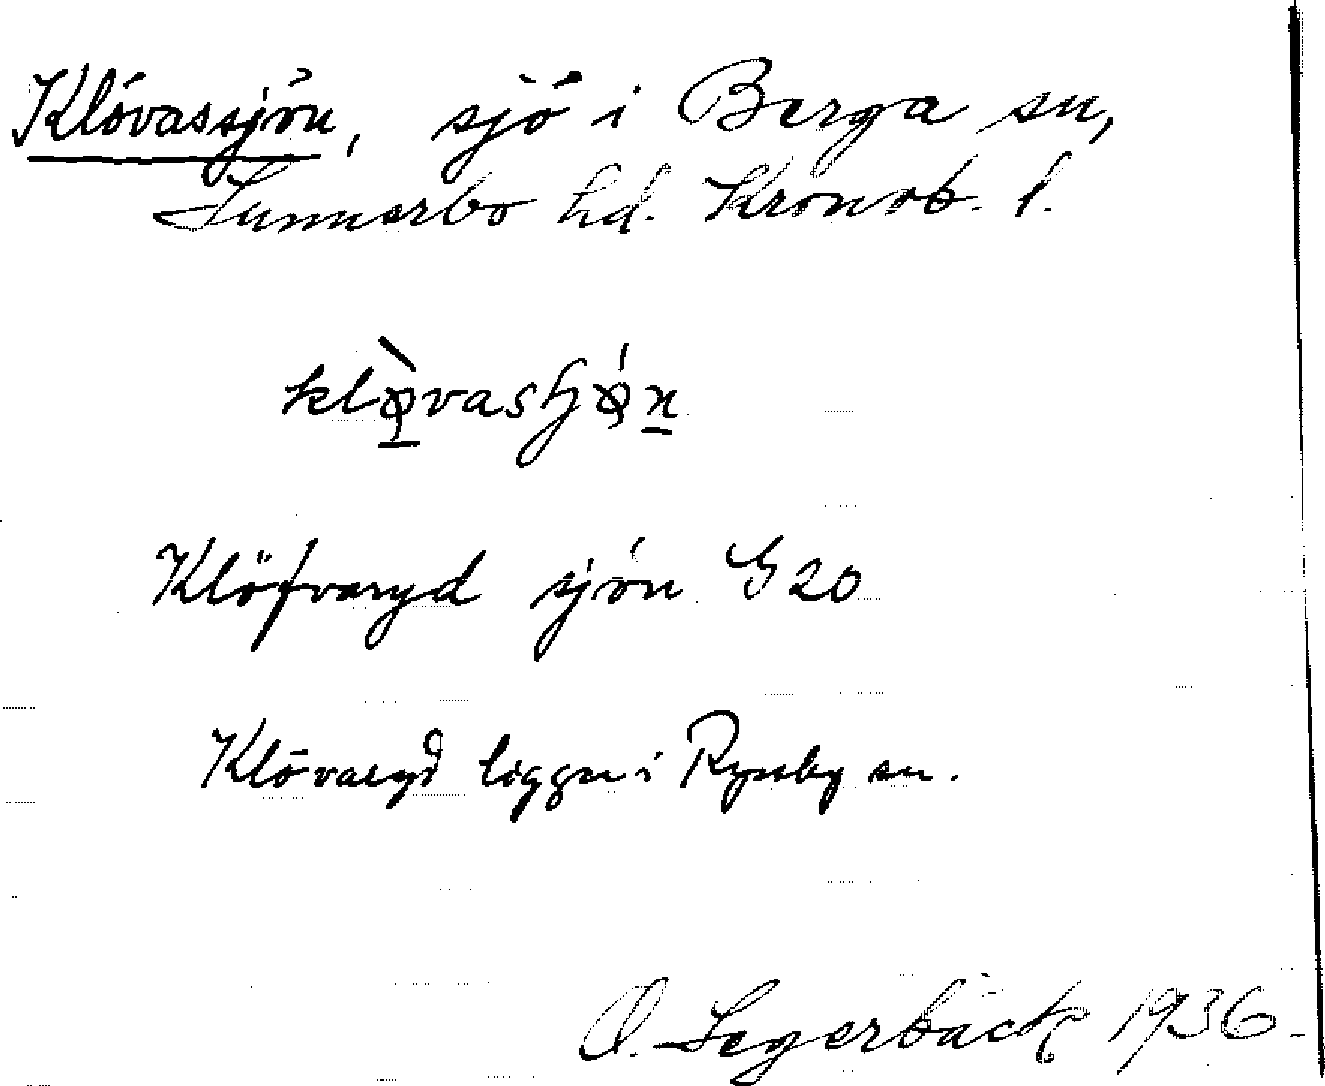 Klövassjön, sjö i Berga sn,
Sunnerbo hd. Kronob. l.
klø̀vasjǿn
Klöfvaryd sjön G 20
Klövaryd ligger i Ryssby sn.
O. Segerbäck 1936